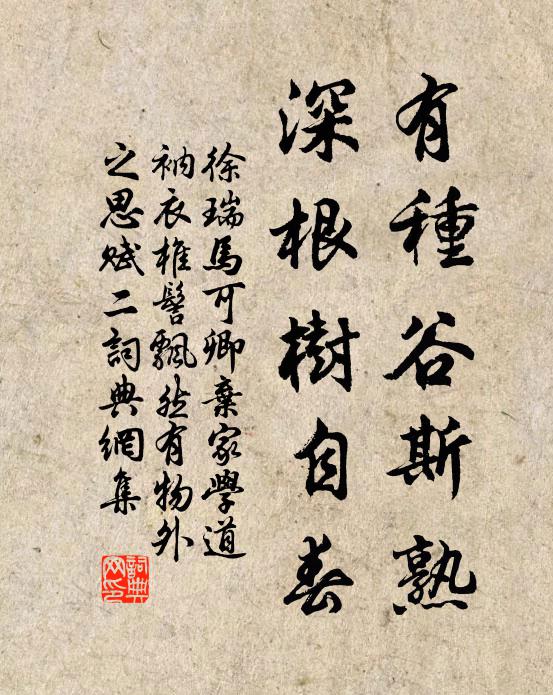 有種谷斯熟
深根樹自春
徐瑞馬可卿棄家學道
衲衣椎髻飄然有物外
之思賦二詞典網集
詞典
网印